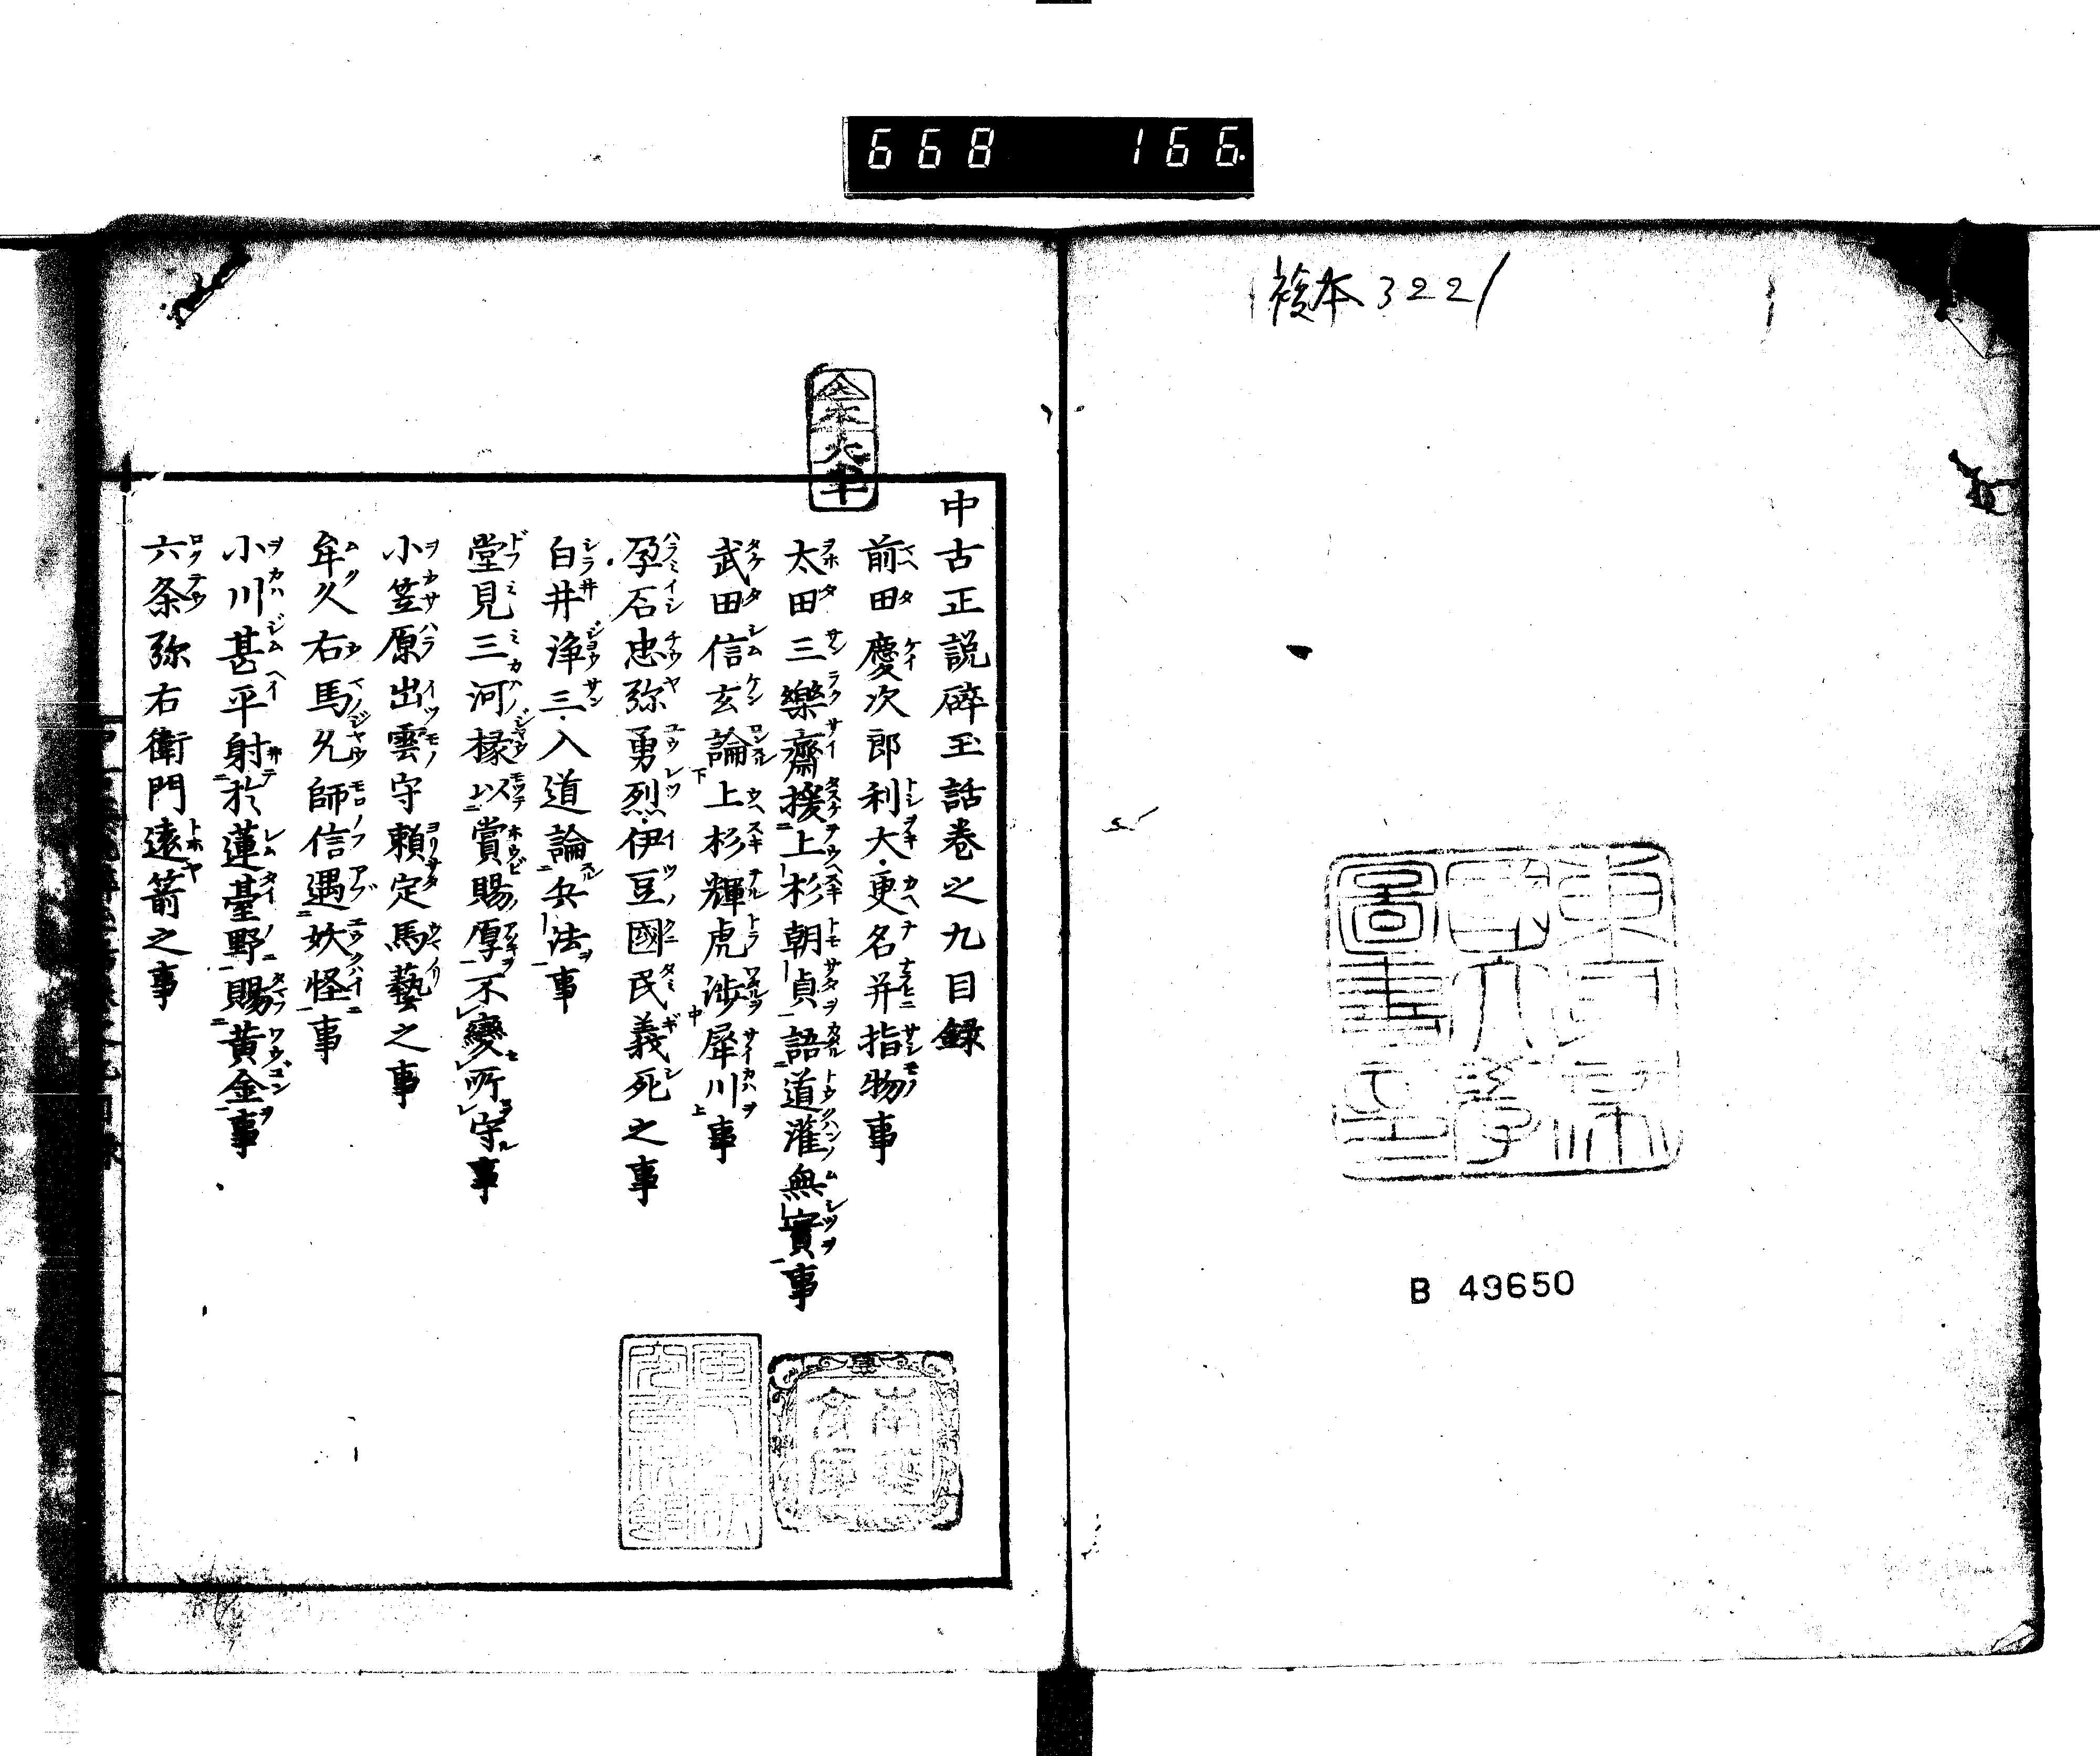 668 166
複本3221
東京帝國大學圖書印
B 49650
中古正説碎玉話巻之九目録
前田慶次郎利大更名并指物事
太田三樂齋援上杉朝貞語道灌無實事
武田信玄論上杉輝虎渉犀川事
孕石忠弥勇烈伊豆國民義死之事
白井浄三入道論兵法事
堂見三河掾以賞賜厚不變所守事
小笠原出雲守頼定馬藝之事
牟久右馬允師信遇妖怪事
小川甚平射於蓮臺野賜黄金事
六条弥右衛門遠箭之事
南葵文庫